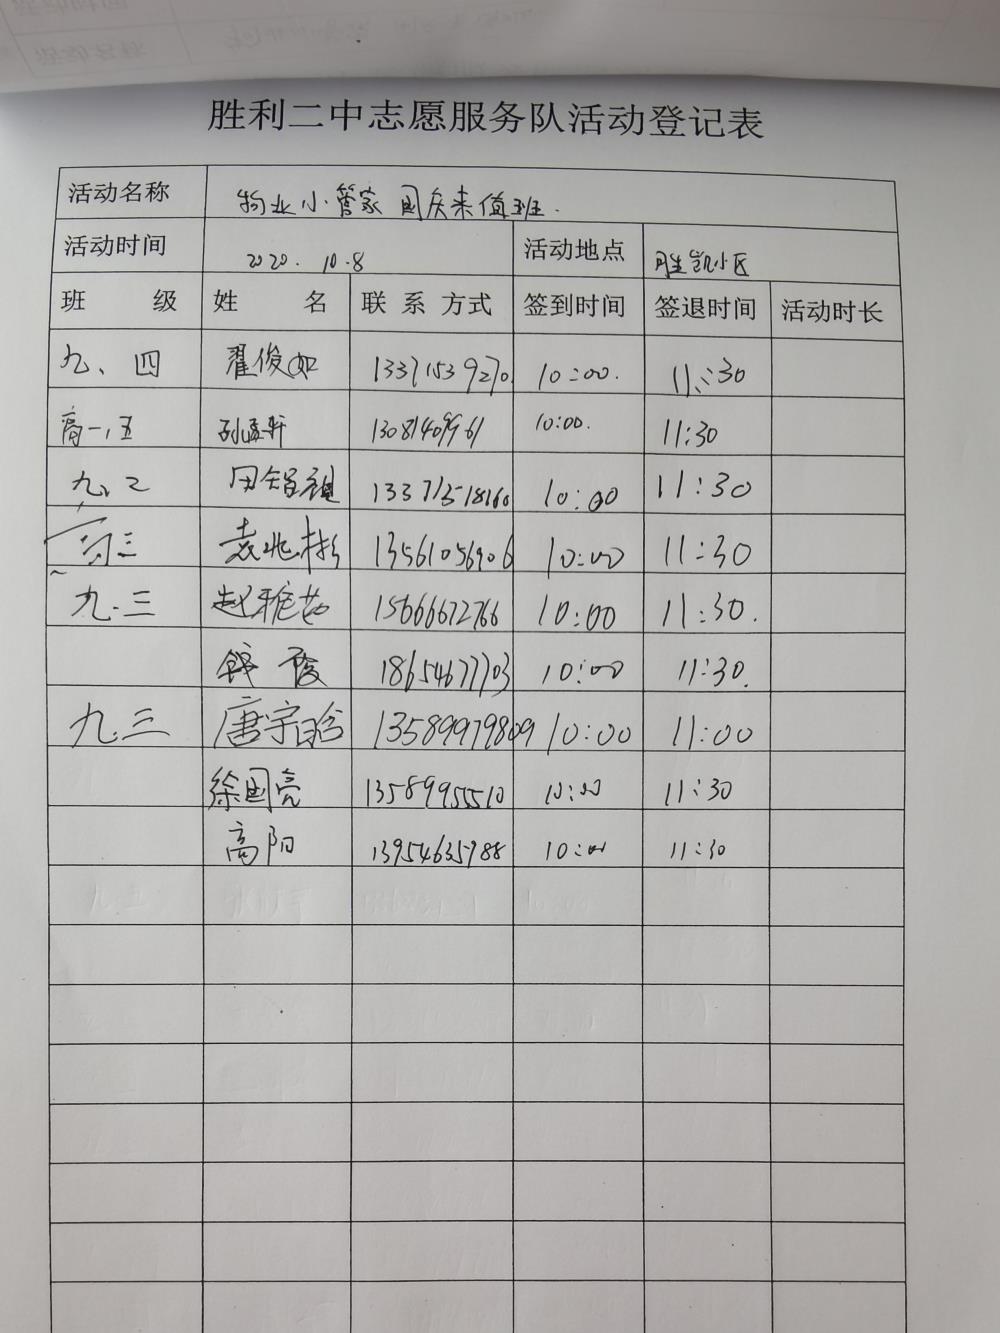 胜利二中志愿服务队活动登记表
活动名称 物业小管家 国庆来值班.
活动时间 2020. 10.8 活动地点 胜凯小区
班 级 姓 名 联 系 方式 签到时间 签退时间 活动时长
九、四 翟俊如 13371539270 10:00. 11:30
高一,五 孙孟轩 13081409961 10:00. 11:30
九、2 田 13371518160 10:00 11:30
三 袁兆彬 13561056906 10:00 11:30
九.三 赵雅茹 15666672766 10:00 11:30.
18654677703 10:00 11:30.
九.三 唐宇晗 13589979809 10:00 11:00
徐国亮 13589955510 10:00 11:30
高阳 13954635988 10:00 11:30